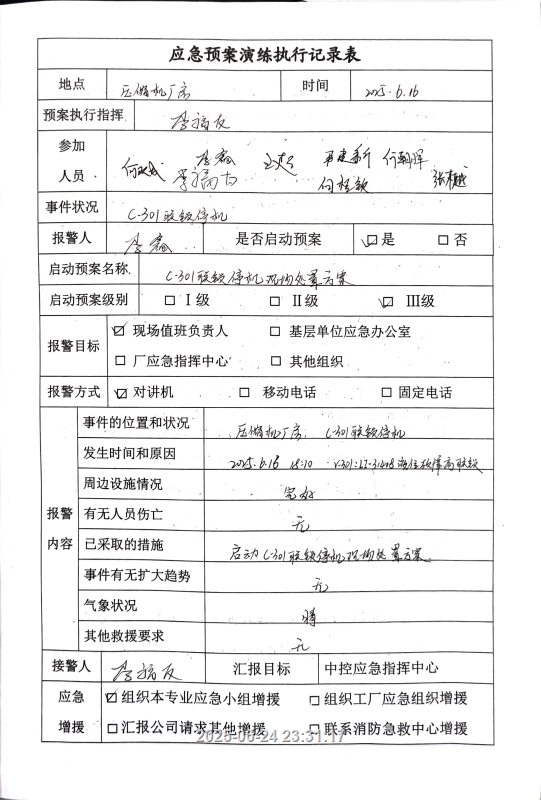 应急预案演练执行记录表
地点 压缩机厂房 时间 2025.6.16
预案执行指挥 李福友
参加
人员
事件状况 C-301联锁停机
报警人 李鑫 是否启动预案 ☑是 □否
启动预案名称 C-301联锁停机现场处置方案
启动预案级别 □Ⅰ级 □Ⅱ级 ☑Ⅲ级
报警目标 ☑现场值班负责人 □基层单位应急办公室
□厂应急指挥中心 □其他组织
报警方式 ☑对讲机 □移动电话 □固定电话
报警
内容
事件的位置和状况 压缩机厂房 C-301联锁停机
发生时间和原因 2025.6.16 18:10 液位故障高联锁
周边设施情况 完好
有无人员伤亡 无
已采取的措施 启动C-301联锁停机现场处置方案
事件有无扩大趋势 无
气象状况
其他救援要求 无
接警人 李福友 汇报目标 中控应急指挥中心
应急
增援
☑组织本专业应急小组增援 □组织工厂应急组织增援
□汇报公司请求其他增援 □联系消防急救中心增援
2025-06-24 23:31:17